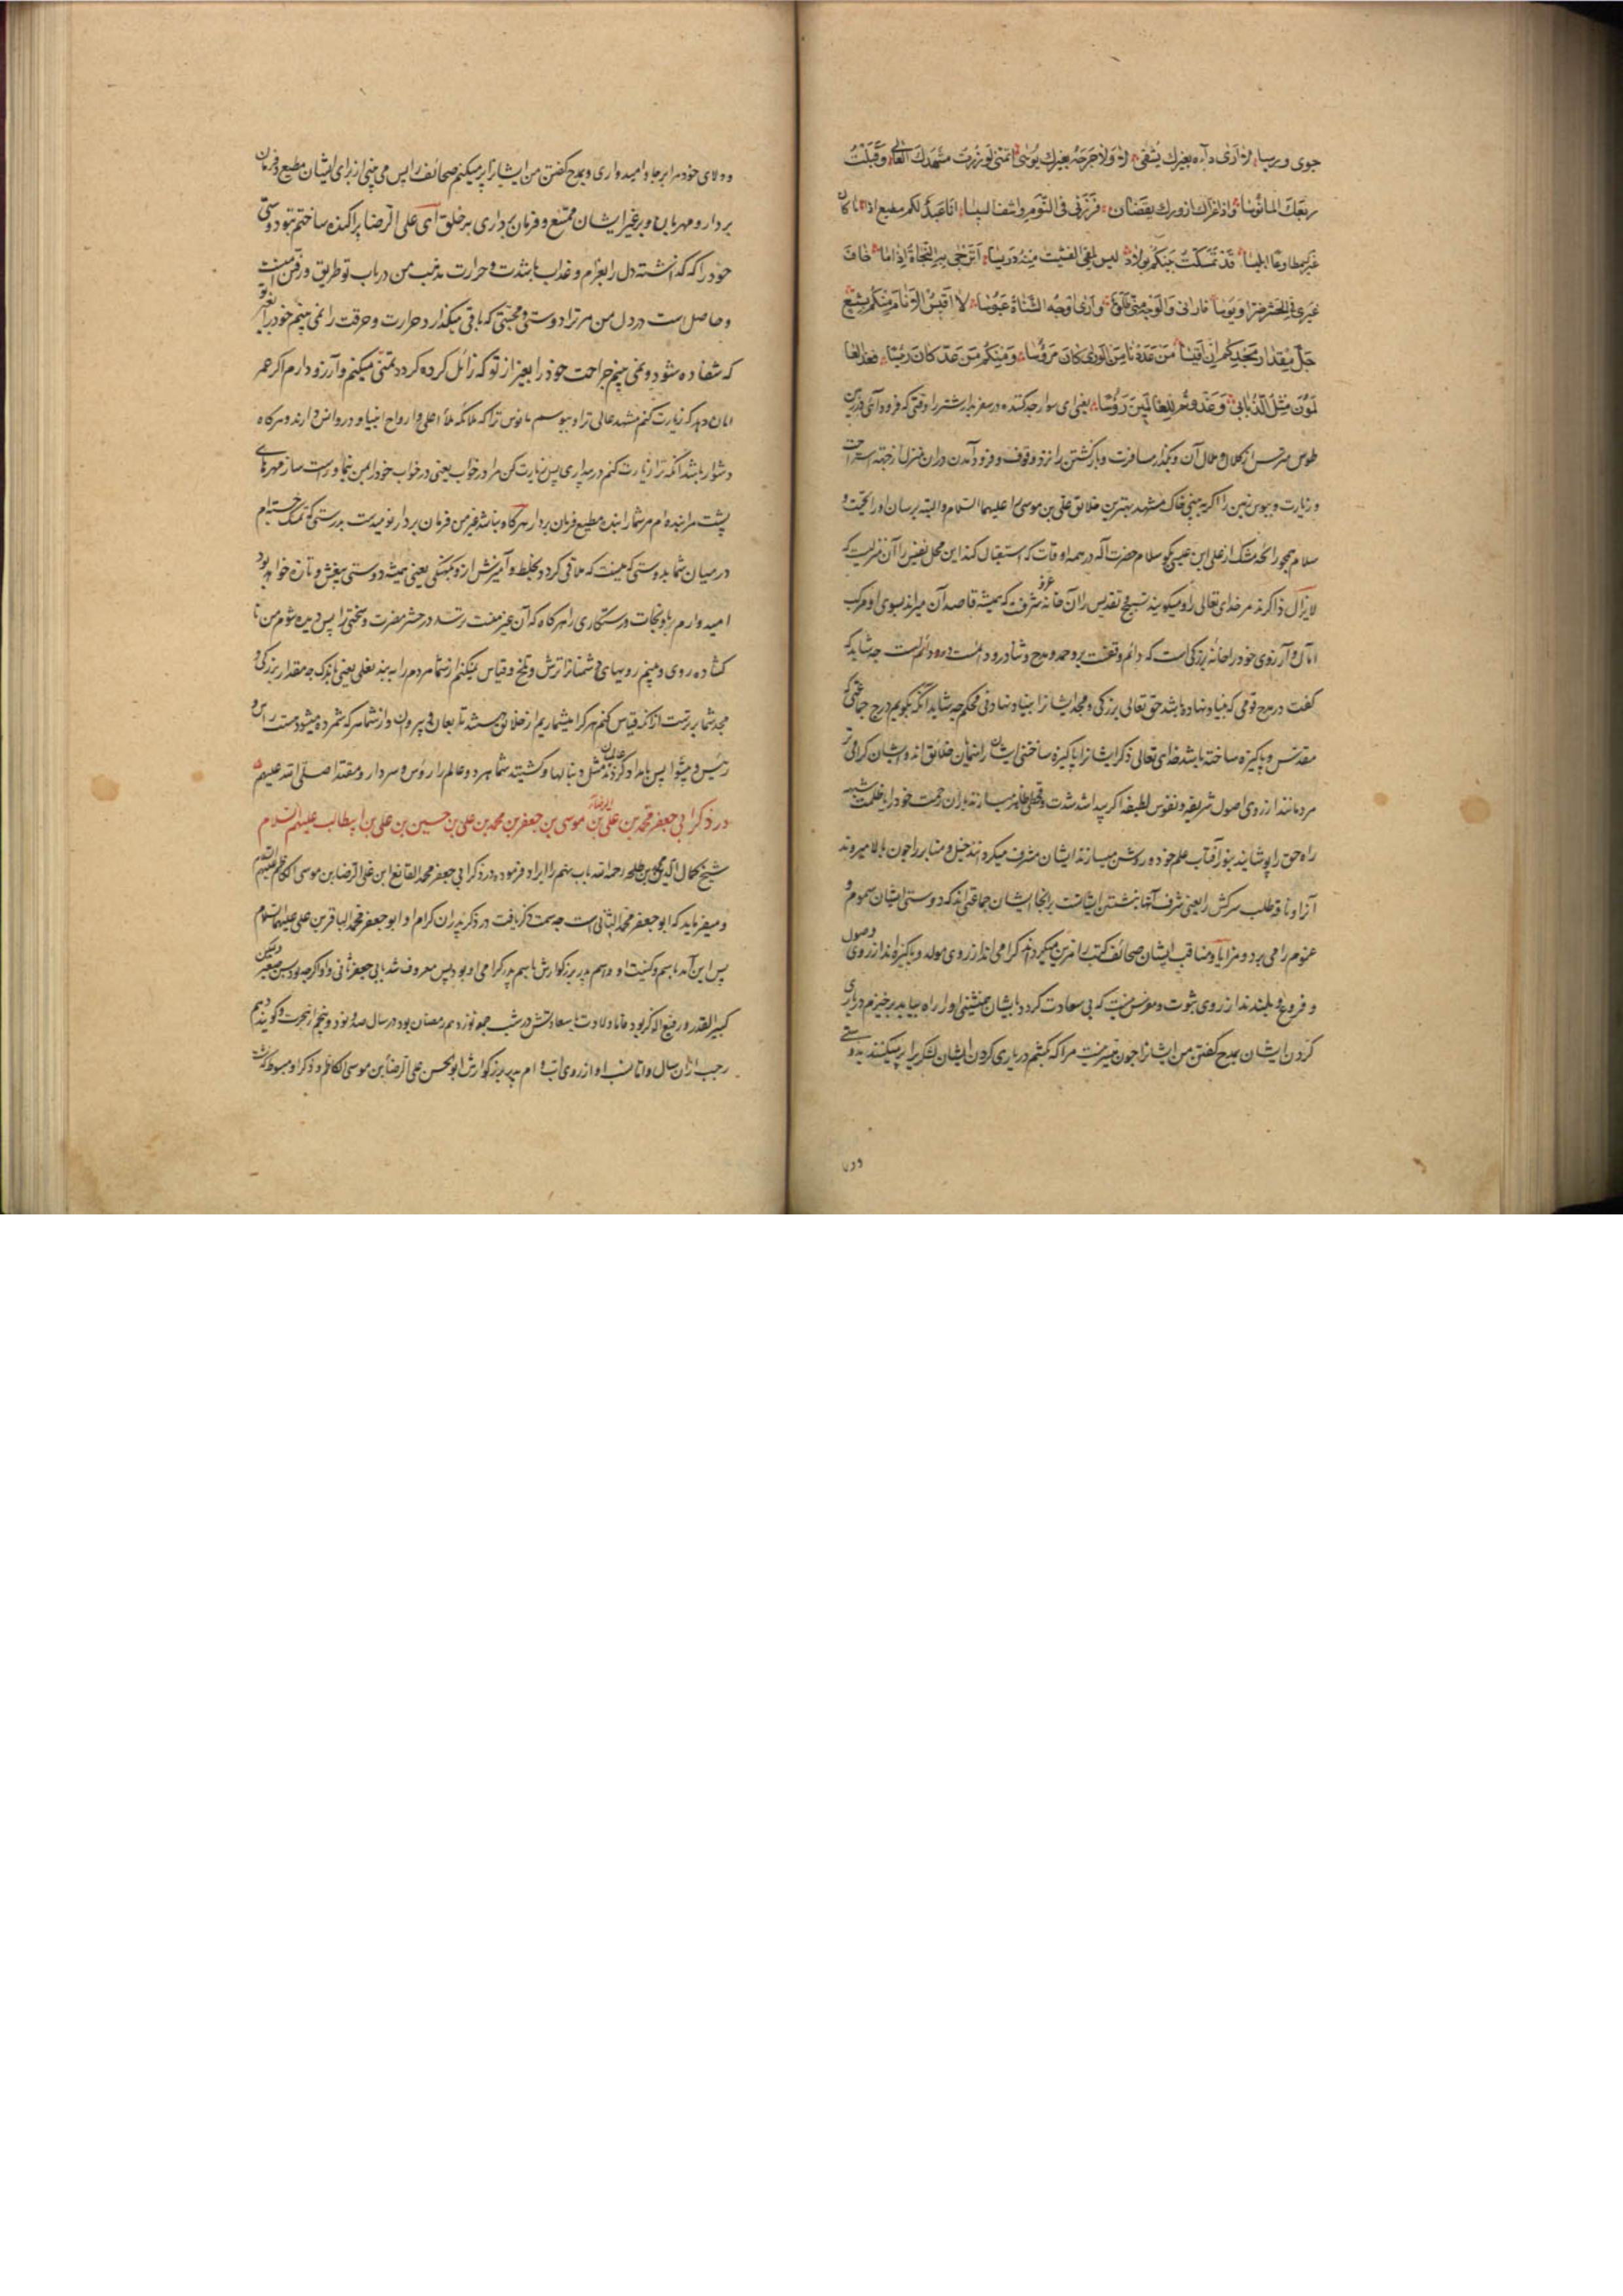 جوی ورسیا لا اری داءه بغیرک یشفی لا ولا جرحه بغیرک یوسی اتمنی لو زرت مشهدک العالی وقبلت
ربعک المانوسا واذا عز ان ازورک یقضان فزرنی فی النوم واشف السیا انا عبد لکم مطیع اذا ما کان
غیری مطاوعا ابلیسا قد تمسکت منکم بولاء لیس یلقی القشیب منه دریسا اترجی به النجاة اذا ما خاف
غیری فی الحشر ضرا وبوسا فارانی والوجه منی طلق واری اوجه الشناة عبوسا لا اقیس الانام منکم بشسع
جل مقدار مجدکم ان اقیسا من عددنا من الوری کان مرؤسا ومنکم من عد کان رئیسا فغدا العا
لمون مثل الذنابی وغدوتم للعالمین رؤسا یعنی ای سوار جدکننده در سفر بدار شتر را وقتی که فرود آئی در زمین
طوس مترس از کلال و ملال آن و بگذار مسافرت و بازگشتن را نزد وقوف و فرود آمدن در ان منزل از جهة استراحت
و زیارت و ببوس زمین را اگر به بینی خاک مشهد بهترین خلائق علی بن موسی را علیهما السلام والبته برسان او را تحیت و
سلام همچو رائحه مشک از علی ابن عیسی بگو سلام حضرت آله در همه اوقات که استقبال کند این محل نفیس را آن منزلیست که
لایزال ذاکرند مر خدای تعالی را و میگویند تسبیح و تقدیس را آن خانه عز و شرف که همیشه قاصد آن میراند بسوی او مرکب
امان و آرزوی خود را خانه بزرگی است که دائم وقفست برو حمد و مدح و ثنا و درود دائمست چه شاید که
گفت در مدح قومی که بنیاد نهاده باشد حق تعالی بزرگی و مجد ایشانرا بنیاد نهادنی محکم چه شاید آنکه بگویم در مدح جماعتی که
مقدس و پاکیزه ساخته باشد خدای تعالی ذکر ایشانرا پاکیزه ساختنی ایشان راهنمایان خلائق اند و ایشان گرامی تر
مردمانند از روی اصول شریفه و نفوس لطیفه اگر پیدا شد شدت و قحطی ظاهر میسازند باران رحمت خود را و اگر ظلمت شبهه
راه حق را پوشانید بنور آفتاب علم خود روشن میسازند ایشان مشرف میگردانند خیل و منابر را چون بالا میروند
آنرا و ناقه طلب سرکش را یعنی شرف آنها بنشستن ایشانست بر آنجا ایشان جماعتی اند که دوستی ایشان هموم و
غموم را می برد و مزایا و مناقب ایشان صحائف کتب را مزین میگرداند گرامی اند از روی مولد و پاکیزه اند از روی اصول
و فروع و بلندند از روی ثبوت و مغرس نیست که بی سعادت گردد بایشان همنشینی او را راه بیابد برخیزم در یاری
کردن ایشان بمدح گفتن من ایشانرا چون میسر نیست مرا که بکشم در یاری کردن ایشان لشکریرا پر میکنند بدوستی
و ولای خود مرا برجا و امیدواری و بمدح گفتن من ایشانرا پر میکنم صحائف را پس می بینی از برای ایشان مطیع و فرمان
بردار و مهربان و بر غیر ایشان ممتنع و فرمان برداری بر خلق ای علی الرضا پراکنده ساختم بتو دوستی
خود را که گذاشته دل را بغرام و عذاب باشدت و حرارت مذهب من در باب تو طریق و رفتن منست
و حاصل است در دل من مر ترا دوستی و محبتی که باقی میگذارد حرارت و حرقت را نمی بینم خود را بغیر تو
که شفا داده شود و نمی بینم جراحت خود را بغیر از تو که زائل کرده گردد تمنی میکنم و آرزو دارم اگر عمر
امان دهد که زیارت کنم مشهد عالی ترا و ببوسم مانوس ترا که ملائکه ملأ اعلی و ارواح انبیا و در و انس دارند و هرگاه
دشوار باشد آنکه ترا زیارت کنم در بیداری پس زیارت کن مرا در خواب یعنی در خواب خود را بمن بنما و راست ساز مهرهای
پشت مرا بنده ام مر شما را بنده مطیع فرمان بردار هرگاه و باشد غیر من فرمان بردار نومیدست بدرستی که تمسک جسته ام
در میان شما بدوستی که نیست که ملاقی گردد بخلط و آمیزش از و کهنگی یعنی همیشه دوستی بیغش و تازه خواهد بود
امیدوارم باو نجات و رستگاری را هرگاه که آن غیر منت برسد در حشر مضرت و سختی را پس دیده شوم من تا
گشاده روی و بینم رویهای دشمنانرا ترش و تلخ و قیاس نمیکنم از شما مردم را به بند نعلی یعنی باندک چه مقدار بزرگی و
مجد شما برترست از آنکه قیاس کنم هر کرا میشماریم از خلائق هستند تابعان و پیروان و از شما هر که شمرده میشود هست راس و
رئیس و پیشوا پس بامداد کردند عالمیان مثل دنبالها و گشتید شما هر دو عالم را رؤس و سردار و مقتدا صلی الله علیهم
در ذکر ابی جعفر محمد بن علی الرضا بن موسی بن جعفر بن محمد بن علی بن حسین بن علی بن ابیطالب علیهم السلام
شیخ کمال الدین محمد بن طلحه رحمه الله باب نهم را ایراد فرموده در ذکر ابی جعفر محمد القانع ابن علی الرضا بن موسی الکاظم علیهم السلام
و میفرماید که ابو جعفر محمد الثانی است چه سمت ذکر یافت در ذکر پدران کرام او ابو جعفر محمد الباقر بن علی علیهما السلام
پس این آمد باسم و کنیت او و اسم پدر بزرگوارش باسم پدر گرامی او بود پس معروف شد بابی جعفر ثانی و او اگر چه بود بسن صغیر و لیکن
کبیر القدر و رفیع الذکر بود و اما ولادت باسعادتش در شب جمعه نوزدهم رمضان بود در سال صد و نود و پنجم از هجرت و گویند دهم
رجب از ان سال و اما نسب او از روی اب و ام پدر بزرگوارش ابو الحسن علی الرضا بن موسی الکاظم و ذکر او مبسوط گذشت